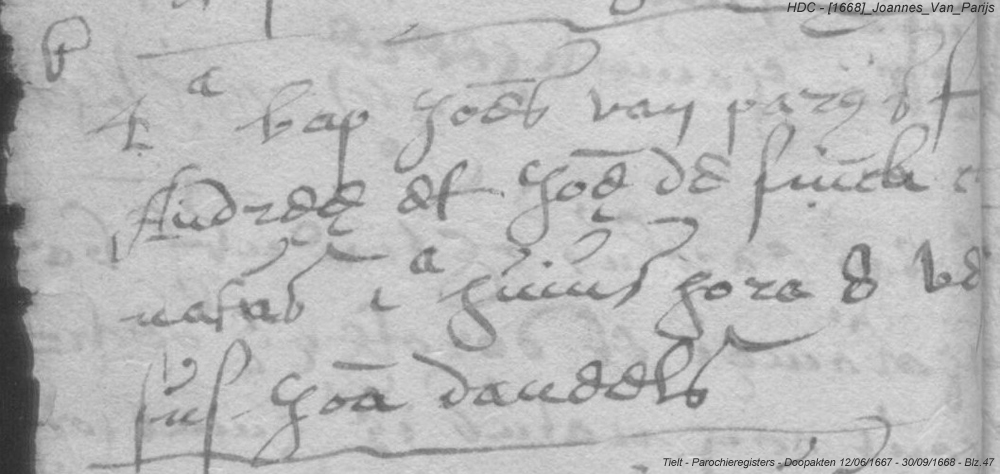 HDC - [1668]_Joannes_Van_Parijs
4 a bap Joēs van parijs f
Andreę et Joē de
natus 1 a huius hora 8 ve
sus Joā dauddels
Tielt - Parochieregisters - Doopakten 12/06/1667 - 30/09/1668 - Blz.47